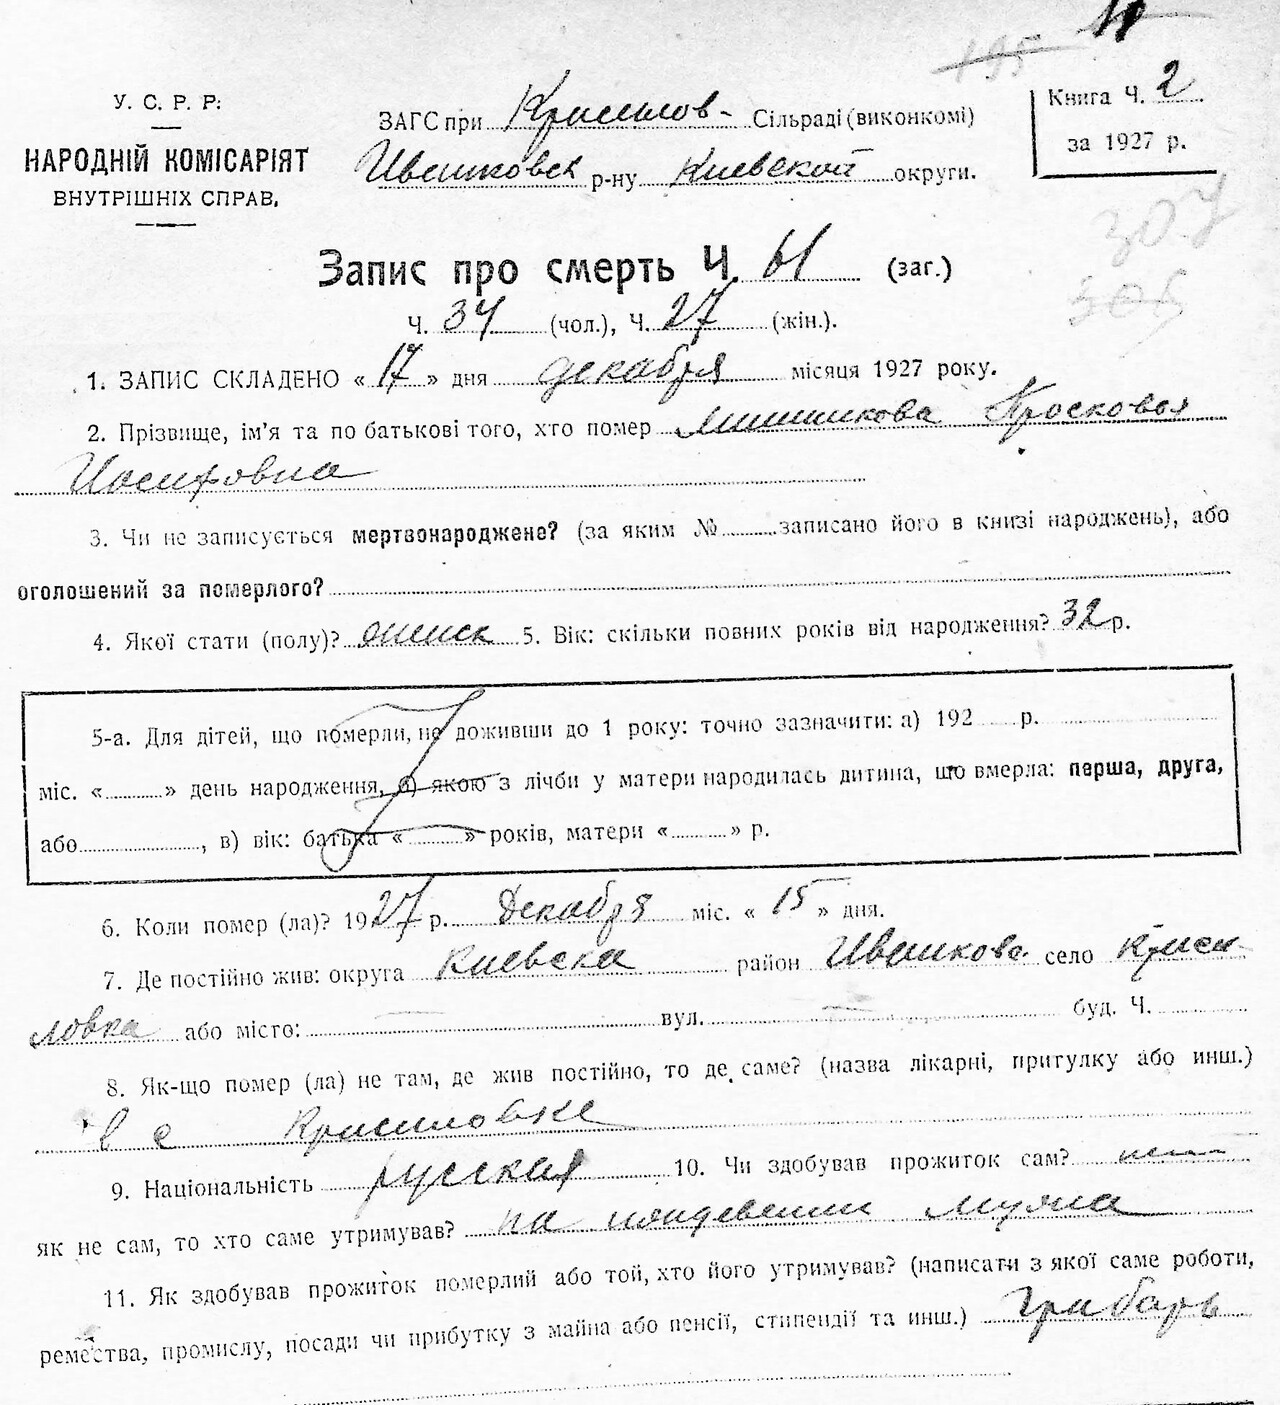 195
У. С. Р. Р:
НАРОДНІЙ КОМІСАРІЯТ
ВНУТРІШНІХ СПРАВ.
ЗАГС при Крисилов- Сільраді (виконкомі)
Ивашковск р-ну Киевской округи.
Книга Ч. 2
за 1927 р.
307
Запис про смерть Ч. 61 (заг.)
Ч. 34 (чол.), Ч. 27 (жін.).
1. ЗАПИС СКЛАДЕНО « 17 » дня декабря місяця 1927 року.
2. Прізвище, ім'я та по батькові того, хто помер Мишикова Просковья
Иосифовна
3. Чи не записується мертвонароджене? (за яким № записано його в книзі народжень), або
оголошений за померлого?
4. Якої стати (полу)? женск 5. Вік: скільки повних років від народження? 32 р.
5-а. Для дітей, що померли, не доживши до 1 року: точно зазначити: а) 192 р.
міс. « » день народження, б) якою з лічби у матери народилась дитина, що вмерла: перша, друга,
або , в) вік: батька « » років, матери « » р.
6. Коли помер (ла)? 1927 р. Декабря міс. « 15 » дня.
7. Де постійно жив: округа Киевска район Ивашкова. село Криси-
ловка або місто: вул. буд. Ч.
8. Як-що помер (ла) не там, де жив постійно, то де саме? (назва лікарні, притулку або инш.)
в с Крисиловке
9. Національність русская 10. Чи здобував прожиток сам?
як не сам, то хто саме утримував? на иждевении мужа
11. Як здобував прожиток померлий або той, хто його утримував? (написати з якої саме роботи,
ремества, промислу, посади чи прибутку з майна або пенсії, стипендії та инш.) Грабарь